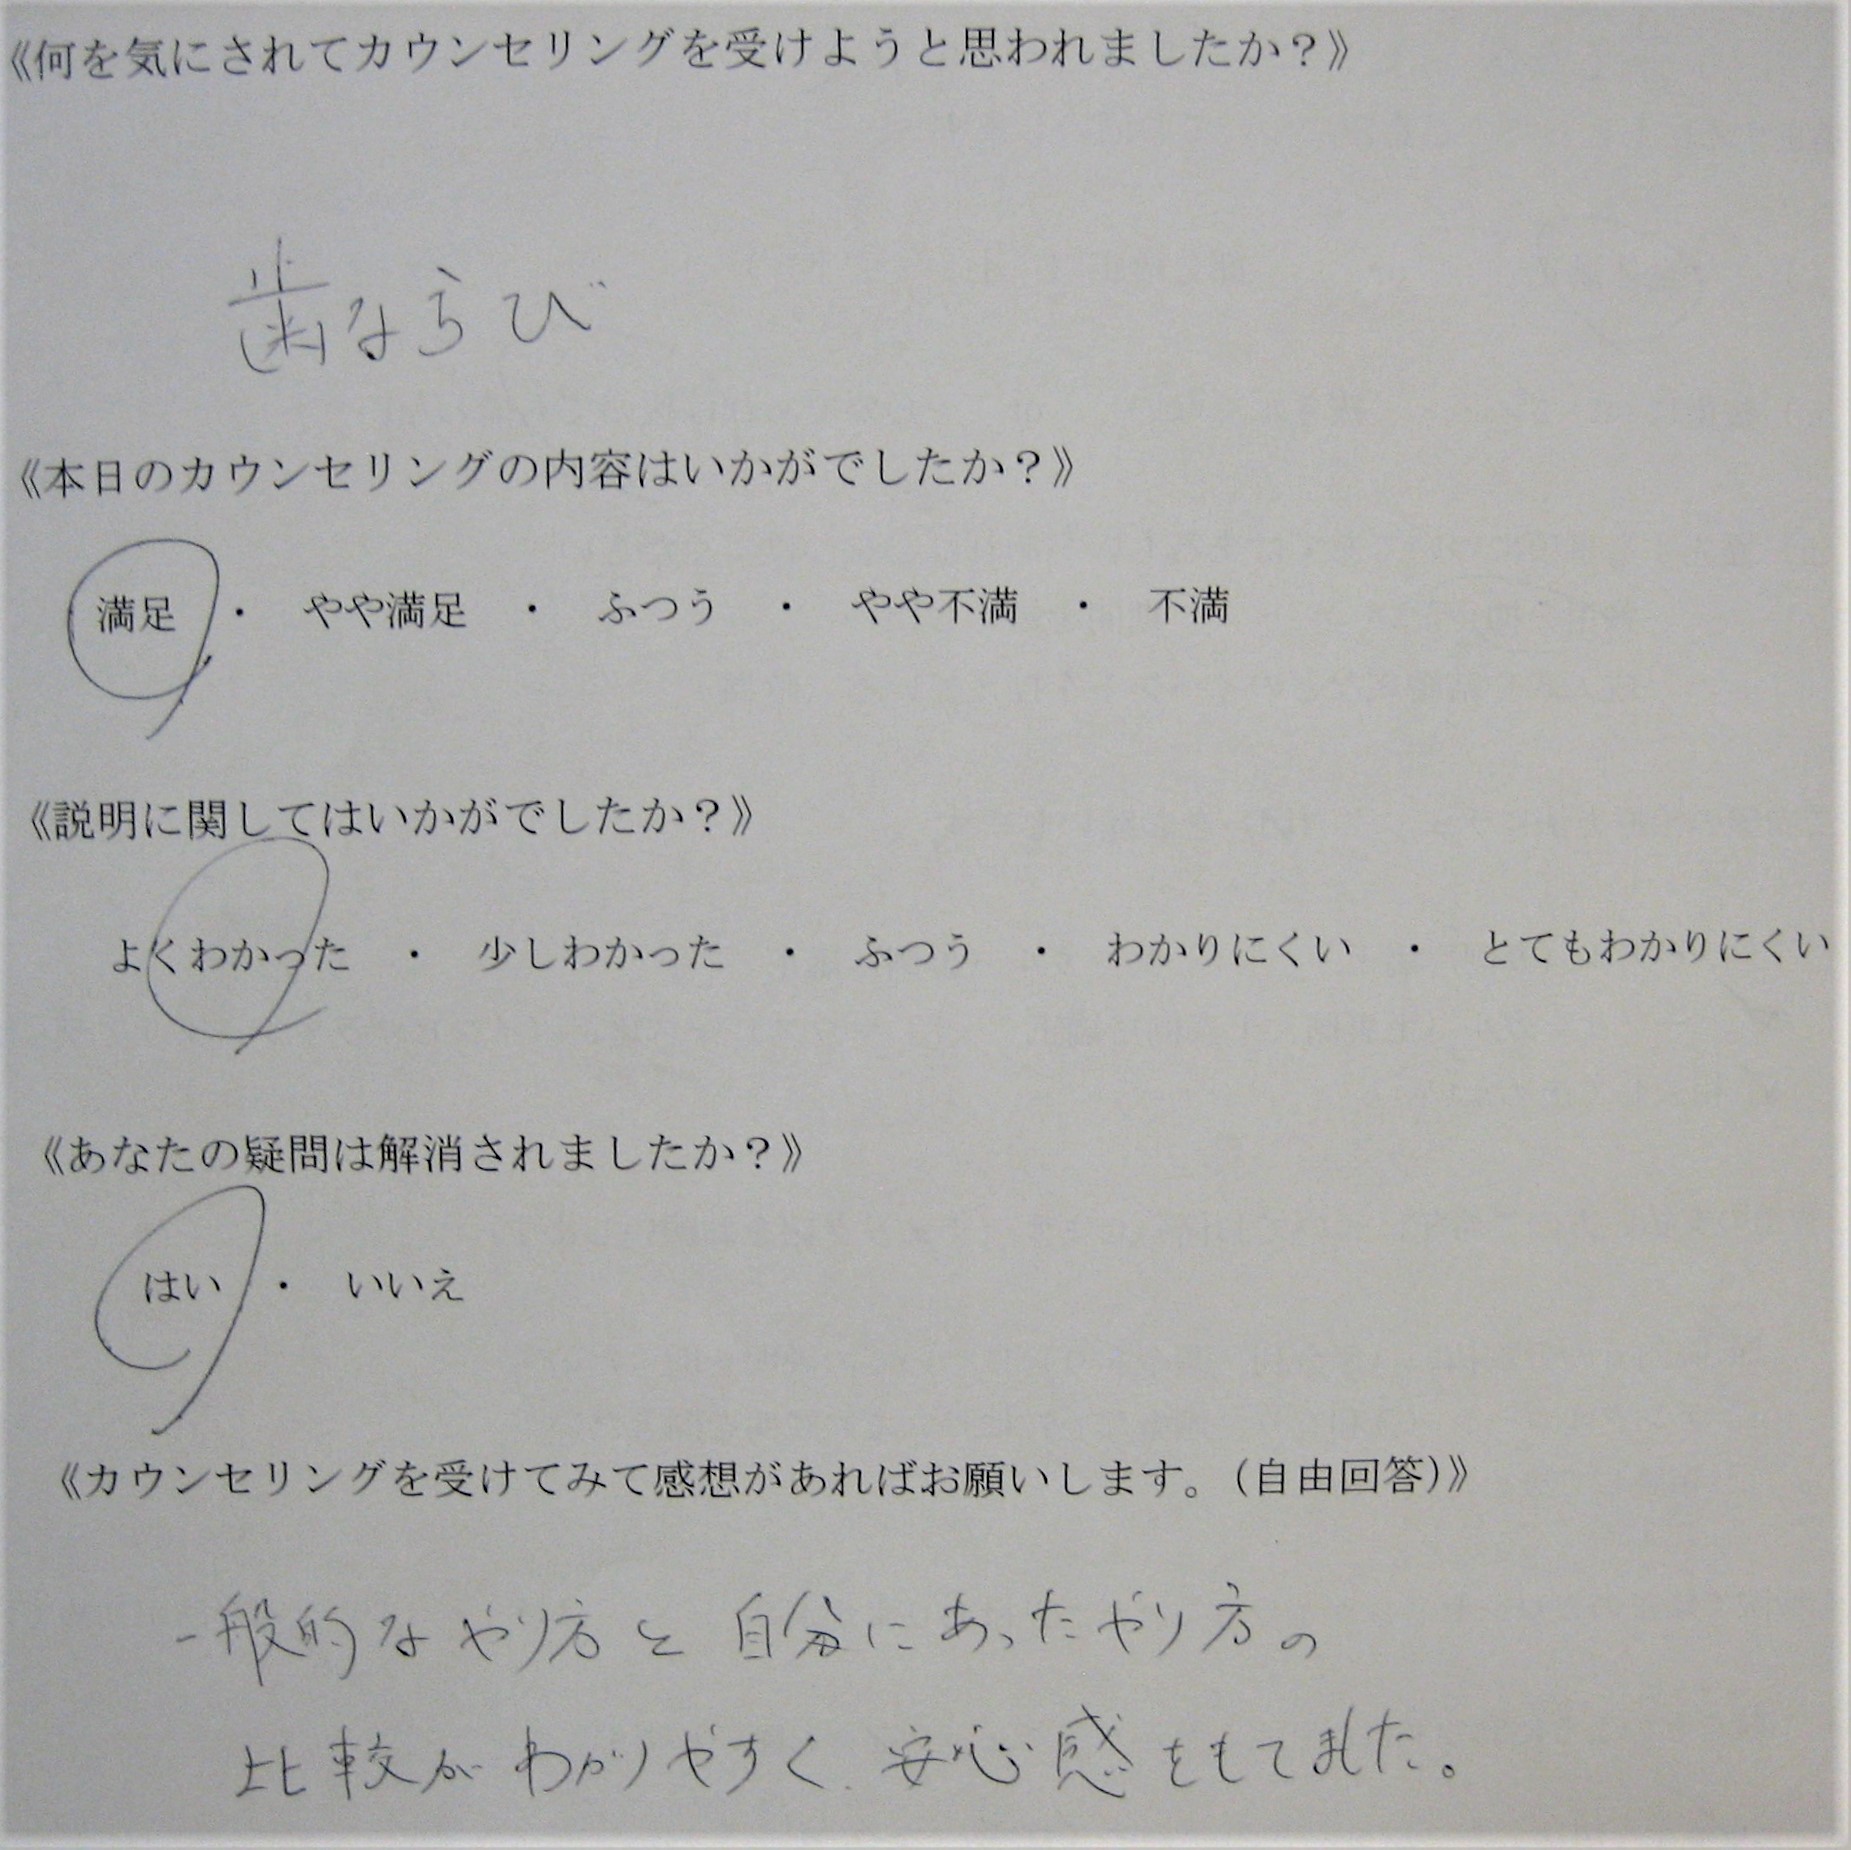 《何を気にされてカウンセリングを受けようと思われましたか？》
歯ならび
《本日のカウンセリングの内容はいかがでしたか？》
満足 ・ やや満足 ・ ふつう ・ やや不満 ・ 不満
《説明に関してはいかがでしたか？》
よくわかった ・ 少しわかった ・ ふつう ・ わかりにくい ・ とてもわかりにくい
《あなたの疑問は解消されましたか？》
はい ・ いいえ
《カウンセリングを受けてみて感想があればお願いします。（自由回答）》
一般的なやり方と自分にあったやり方の
比較がわかりやすく、安心感をもてました。